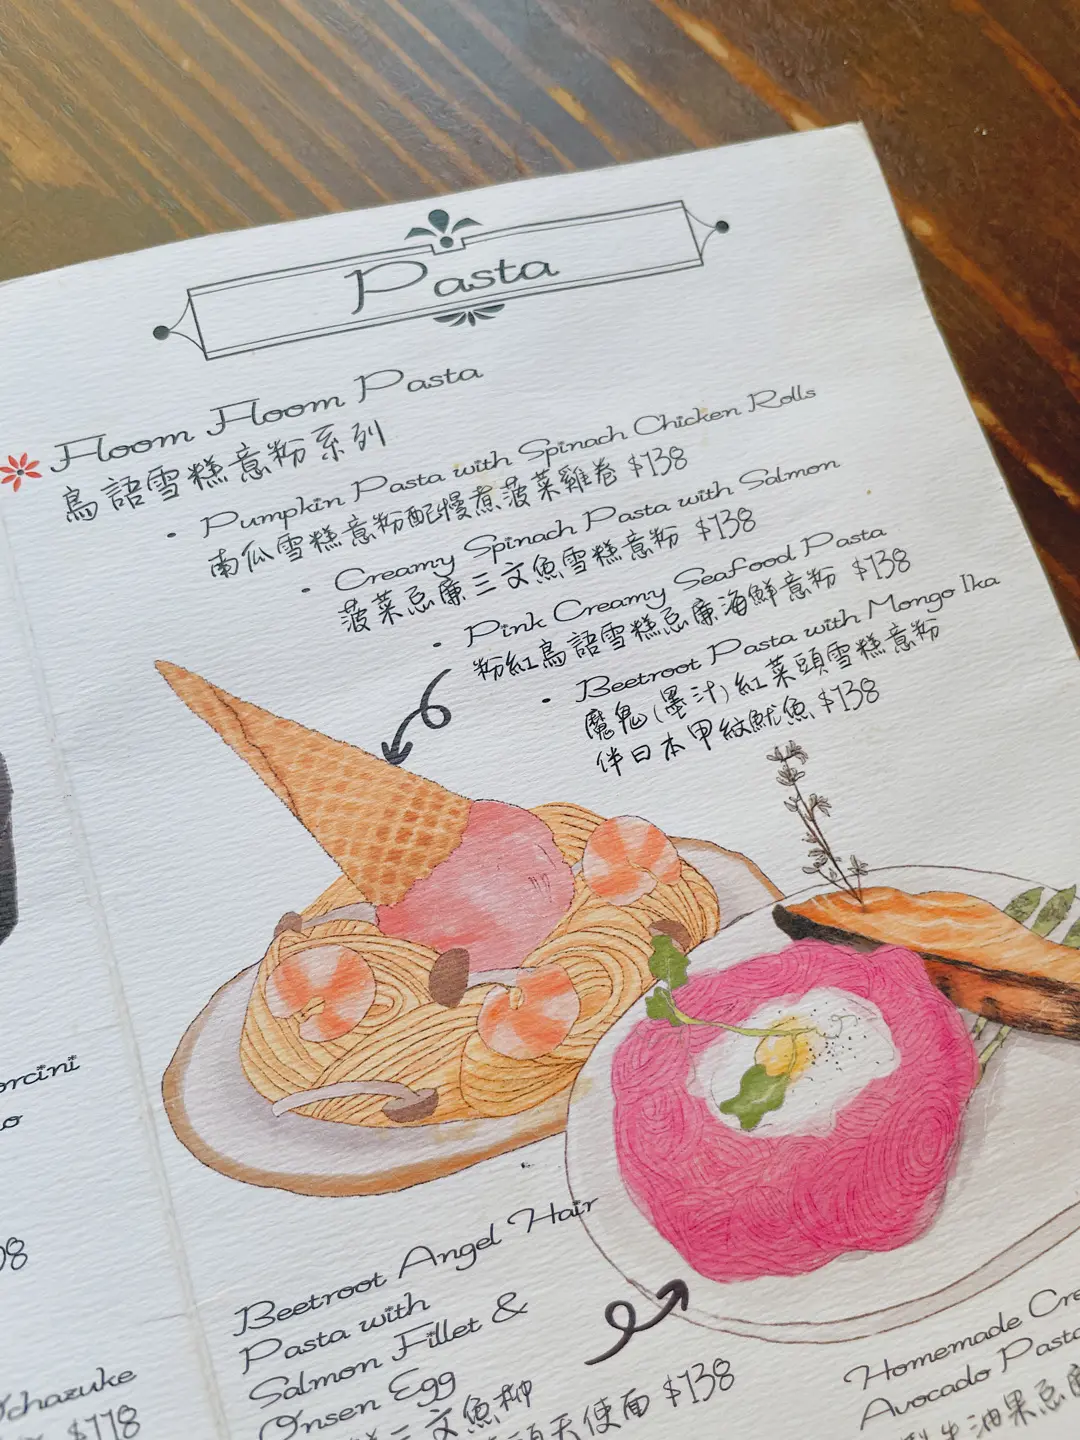 Pasta
Floom Floom Pasta
鳥語雪糕意粉系列
• Pumpkin Pasta with Spinach Chicken Rolls
南瓜雪糕意粉配慢煮菠菜雞卷 $138
• Creamy Spinach Pasta with Salmon
菠菜忌廉三文魚雪糕意粉 $138
• Pink Creamy Seafood Pasta
粉紅鳥語雪糕忌廉海鮮意粉 $138
• Beetroot Pasta with Mongo Ika
魔鬼(墨汁)紅菜頭雪糕意粉
伴日本甲紋魷魚 $138
orcini
o
08
Ochazuke
$118
Beetroot Angel Hair
Pasta with
Salmon Fillet &
Onsen Egg
三文魚柳
頭天使面 $138
Homemade Cre
Avocado Pasta
牛油果忌廉